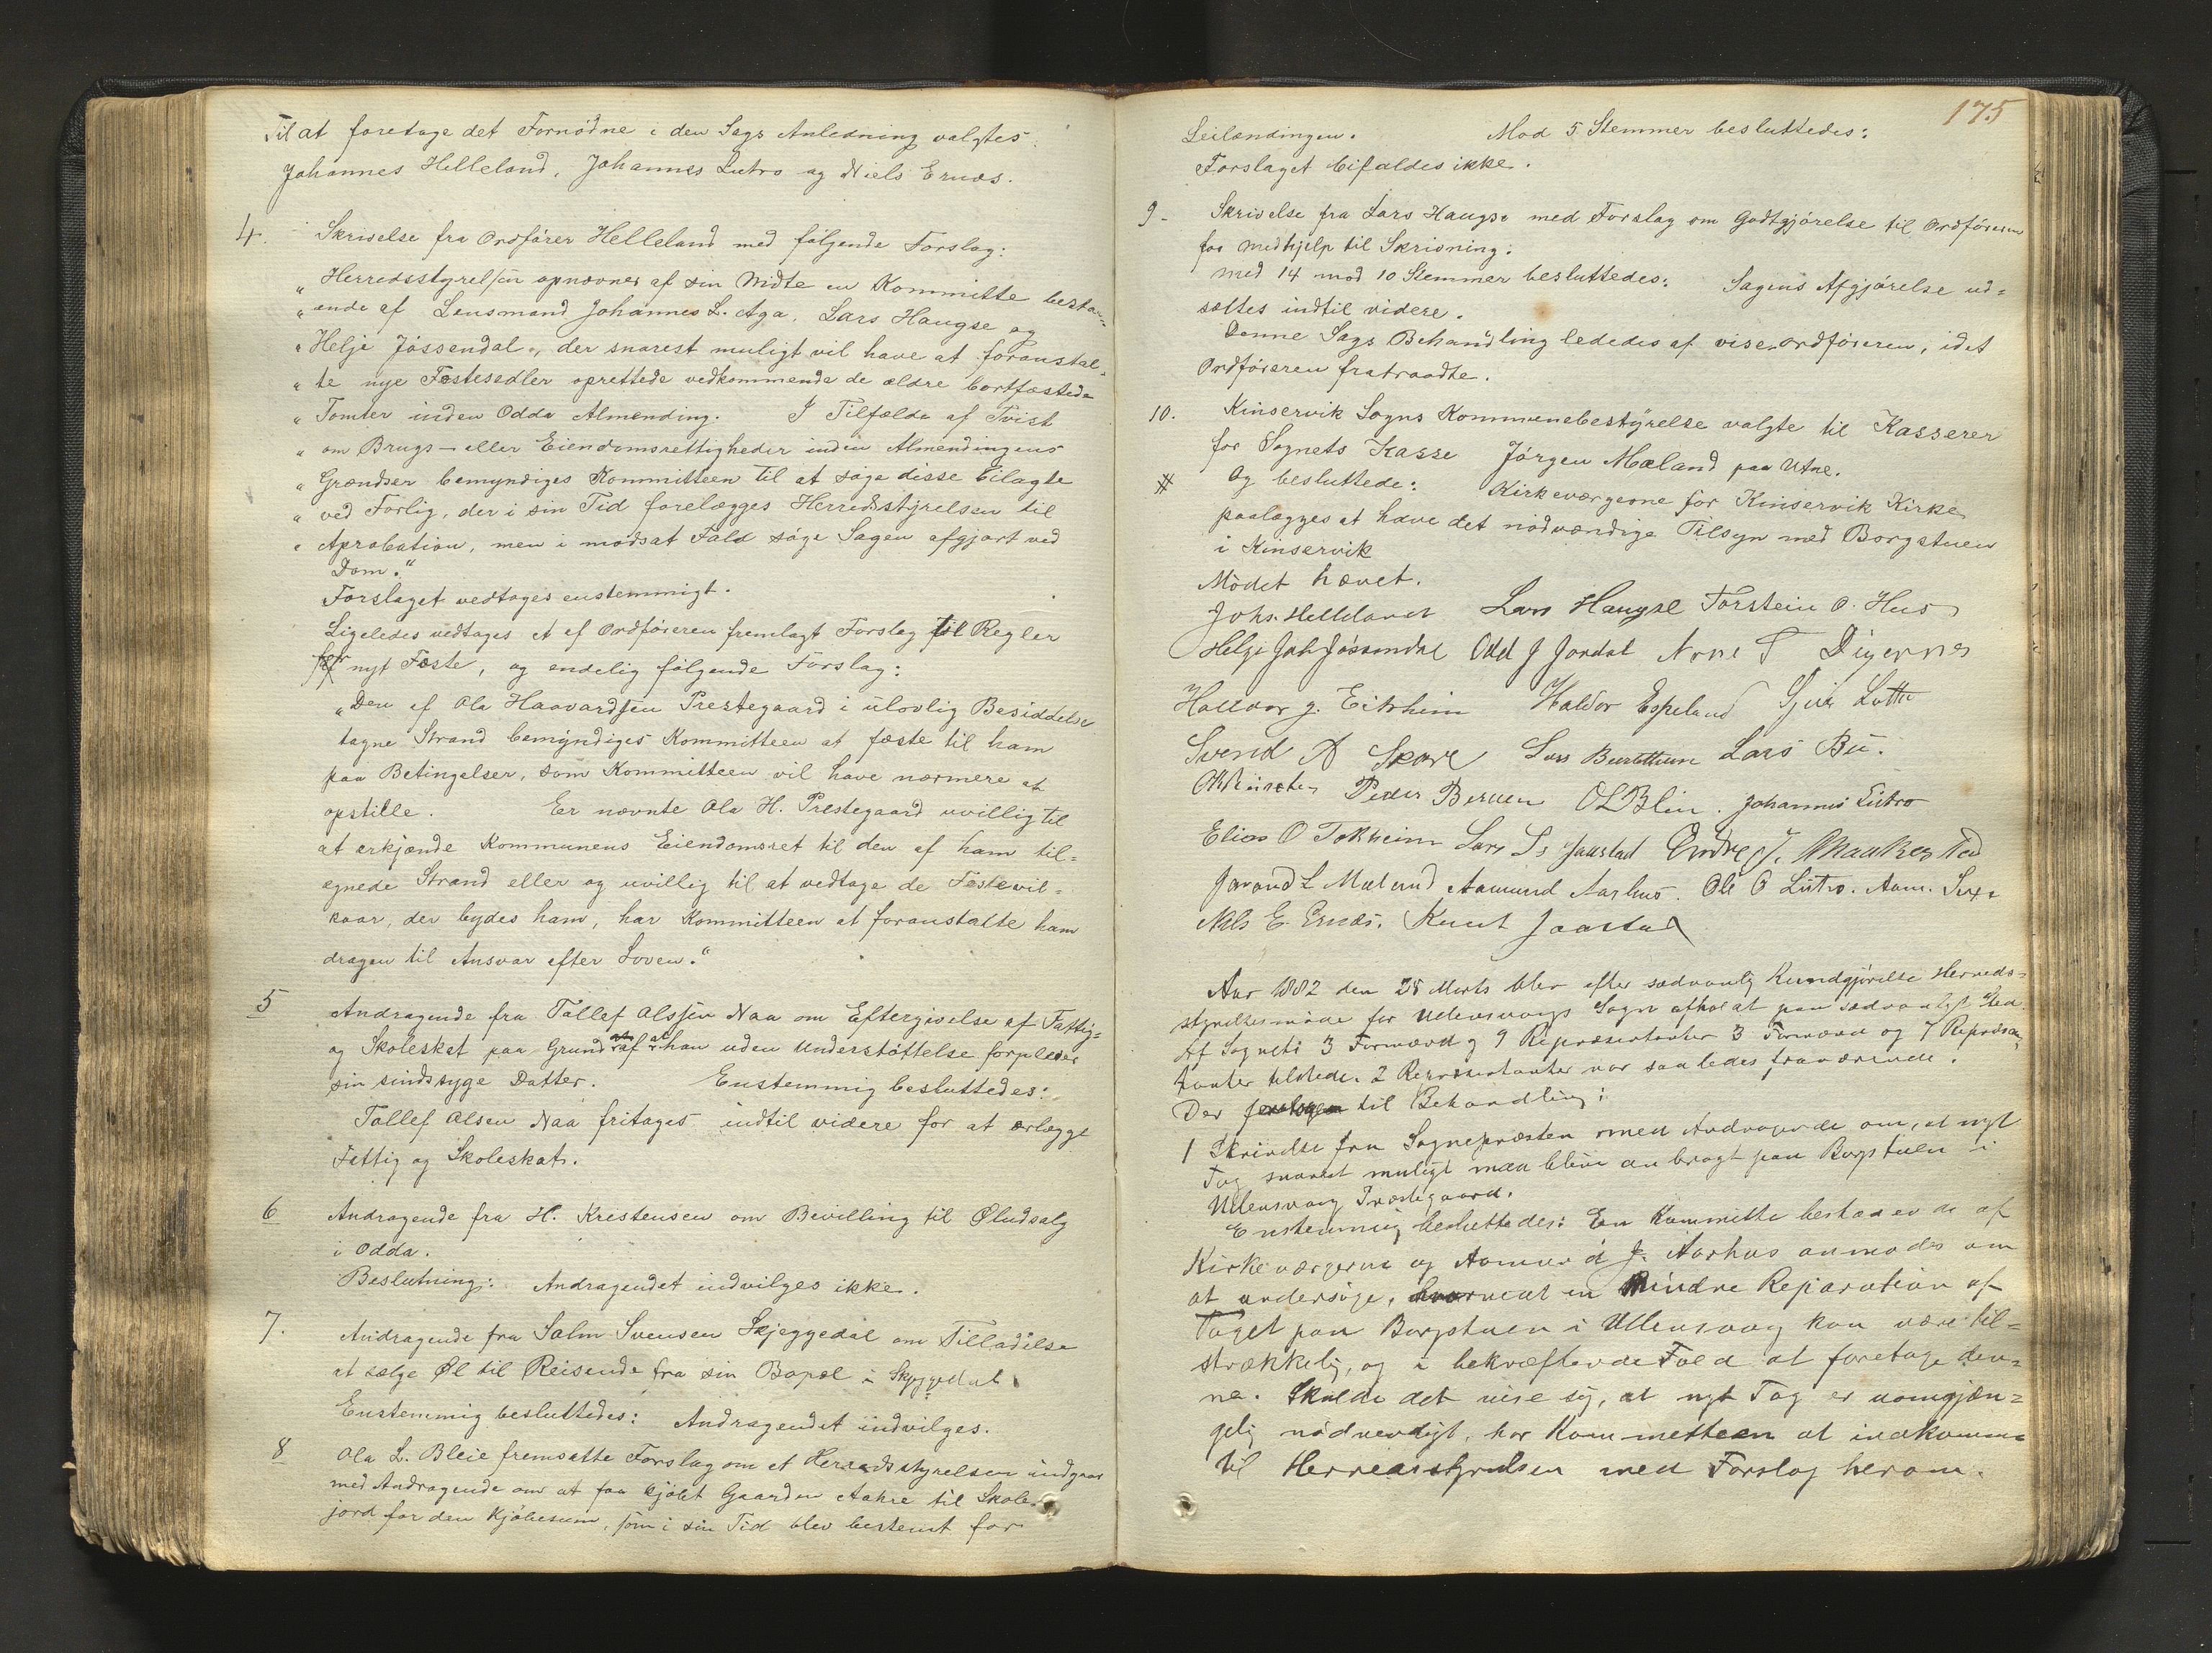 Til at foretage det Fornödne i den Sags Anledning valgtes
Johannes Helleland, Johannes Lutro og Niels Ernæs.
4. Skrivelse fra Ordförer Helleland med fölgende Forslag:
„Herredsstyrelsen opnævner af sin Midte en Kommitte bestaa=
„ende af Lensmand Johannes L. Aga, Lars Haugse og
„Helje Jössendal, der snarest muligt vil have at foranstal=
„te nye Festesedler oprettede vedkommende de ældre bortfæstede
„Tomter inden Odda Almending. I Tilfælde af Tvist
„om Brugs- eller Eiendomsrettigheder inden Almendingens
„Grændser bemyndiges Kommitteen til at söge disse bilagte
„ved Forlig, der i sin Tid forelægges Herredsstyrelsen til
„Aprobation, men i modsat Fald söge Sagen afgjort ved
Dom.“
Forslaget vedtages enstemmigt.
Ligeledes vedtages et af Ordföreren fremlagt Forslag til Regler
for nyt Feste, og endelig fölgende Forslag:
„Den af Ola Haavardsen Prestegaard i ulovlig Besiddelse
tagne Strand bemyndiges Kommitteen at fæste til ham
paa Betingelser, som Kommitteen vil have nærmere at
opstille. Er nævnte Ola H. Prestegaard uvillig til
at erkjænde Kommunens Eiendomsret til den af ham til=
egnede Strand eller og uvillig til at vedtage de Festevil=
kaar, der bydes ham, har Kommitteen at foranstalte ham
dragen til Ansvar efter Loven.“
5 Andragende fra Tollef Olssen Naa om Eftergivelse af Fattig=
og Skoleskat paa Grund af at han uden Understöttelse forpleier
sin sindssyge Datter. Enstemmig besluttedes:
Tollef Olsen Naa fritages indtil videre for at erlægge
Fattig og Skoleskat.
6 Andragende fra H. Krestensen om Bevilling til Øludsalg
i Odda.
Beslutning: Andragendet indvilges ikke.
7. Andragende fra Salm. Svensen Skjeggedal om Tilladelse
at sælge Øl til Reisende fra sin Bopæl i Skjeggedal
Enstemmig besluttedes: Andragendet indvilges.
8 Ola L. Bleie fremsatte Forslag om at Herredsstyrelsen indgaar
med Andragende om at faa kjöbt Gaarden Aakre til Skole=
jord for den Kjöbesum, som i sin Tid blev bestemt for
175
Leilændingen. Mod 5 Stemmer besluttedes:
Forslaget bifaldes ikke.
9- Skrivelse fra Lars Haugse med Forslag om Godtgjörelse til Ordföreren
for Medhjelp til Skrivning.
Med 14 mod 10 Stemmer besluttedes: Sagens Afgjörelse ud=
sættes indtil videre.
Denne Sags Behandling lededes af viseordföreren, idet
Ordföreren fratraadte.
10. Kinservik Sogns Kommunebestyrelse valgte til Kasserer
for Sognets Kasse Jörgen Mæland paa Utne.
# Og besluttede: Kirkeværgerne for Kinservik Kirke
paalægges at have det nödvendige Tilsyn med Borgstuen
i Kinservik
Mödet hævet.
Johs. Helleland Lars Haugse Torstein O. Hus
Helje Joh Jössendal Odd J Jordal Arne T Digernes
Halvor G. Eitrheim Haldor Espeland
Svend A Skare Lars Lars Bu.
Peder Berven O L Blie. Johannes Lutro
Elias O Tokheim Lars Ls Jaastad Endre J.
Jørand L Mæland Aamund Aarhus. Ole O Lutro. Aam.
Nils E Ernæs. Knut Jaastad
Aar 1882 den 28 Marts blev efter sædvanlig Kundgjörelse Herreds=
styrelsesmöde for Ullensvangs Sogn afholdt paa sædvanligt Sted.
Af Sognets 3 Formænd og 9 Repræsentanter 3 Formænd og 7 Repræsen=
tanter tilstede. 2 Repræsentanter var saaledes fraværende.
Der foretoges til Behandling:
1 Skrivelse fra Sognepræsten med Andragende om, at nyt
Tag snarest muligt maa blive anbragt paa Borgstuen i
Ullensvang Præstegaard.
Enstemmig besluttedes: En Kommitte bestaaende af
Kirkeværgerne og Aamund J. Aarhus anmodes om
at undersöge, hvorvidt en Mindre Reparation af
Taget paa Borgstuen i Ullensvang kan være til=
strækkelig, og i bekræftende Fald at foretage den=
ne. Skulde det vise sig, at nyt Tag er uomgjæn=
gelig nödvendigt, har Kommetteen at indkomme
til Herredsstyrelsen med Forslag herom.